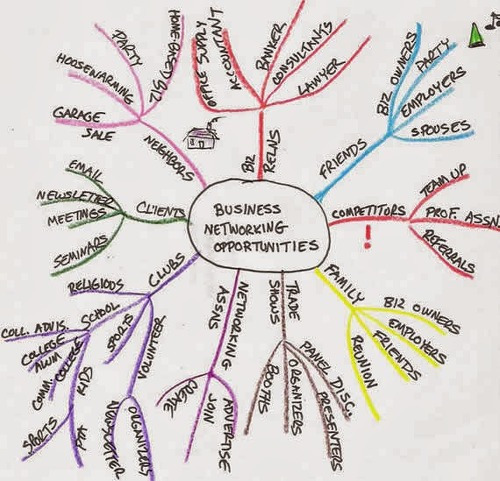 BUSINESS
NETWORKING
OPPORTUNITIES
BIZ RELNS
OFFICE SUPPLY
ACCOUNTANT
BANKER
CONSULTANTS
LAWYER
FRIENDS
BIZ OWNERS
PARTY
EMPLOYERS
SPOUSES
COMPETITORS
!
TEAM UP
PROF. ASSN.
REFERRALS
FAMILY
BIZ OWNERS
EMPLOYERS
FRIENDS
REUNION
TRADE SHOWS
PANEL DISC.
PRESENTERS
ORGANIZERS
BOOTHS
NETWORKING ASSNS
ADVERTISE
JOIN
CREATE
CLUBS
RELIGIOUS
SCHOOL
COLL. ADVIS.
COLLEGE ALUM
COMM. COLLEGE
KIDS
SPORTS
SPORTS
VOLUNTEER
ORGANIZERS
CLIENTS
EMAIL
NEWSLETTER
MEETINGS
SEMINARS
NEIGHBORS
HOME-BASED BIZ
PARTY
HOUSEWARMING
GARAGE SALE